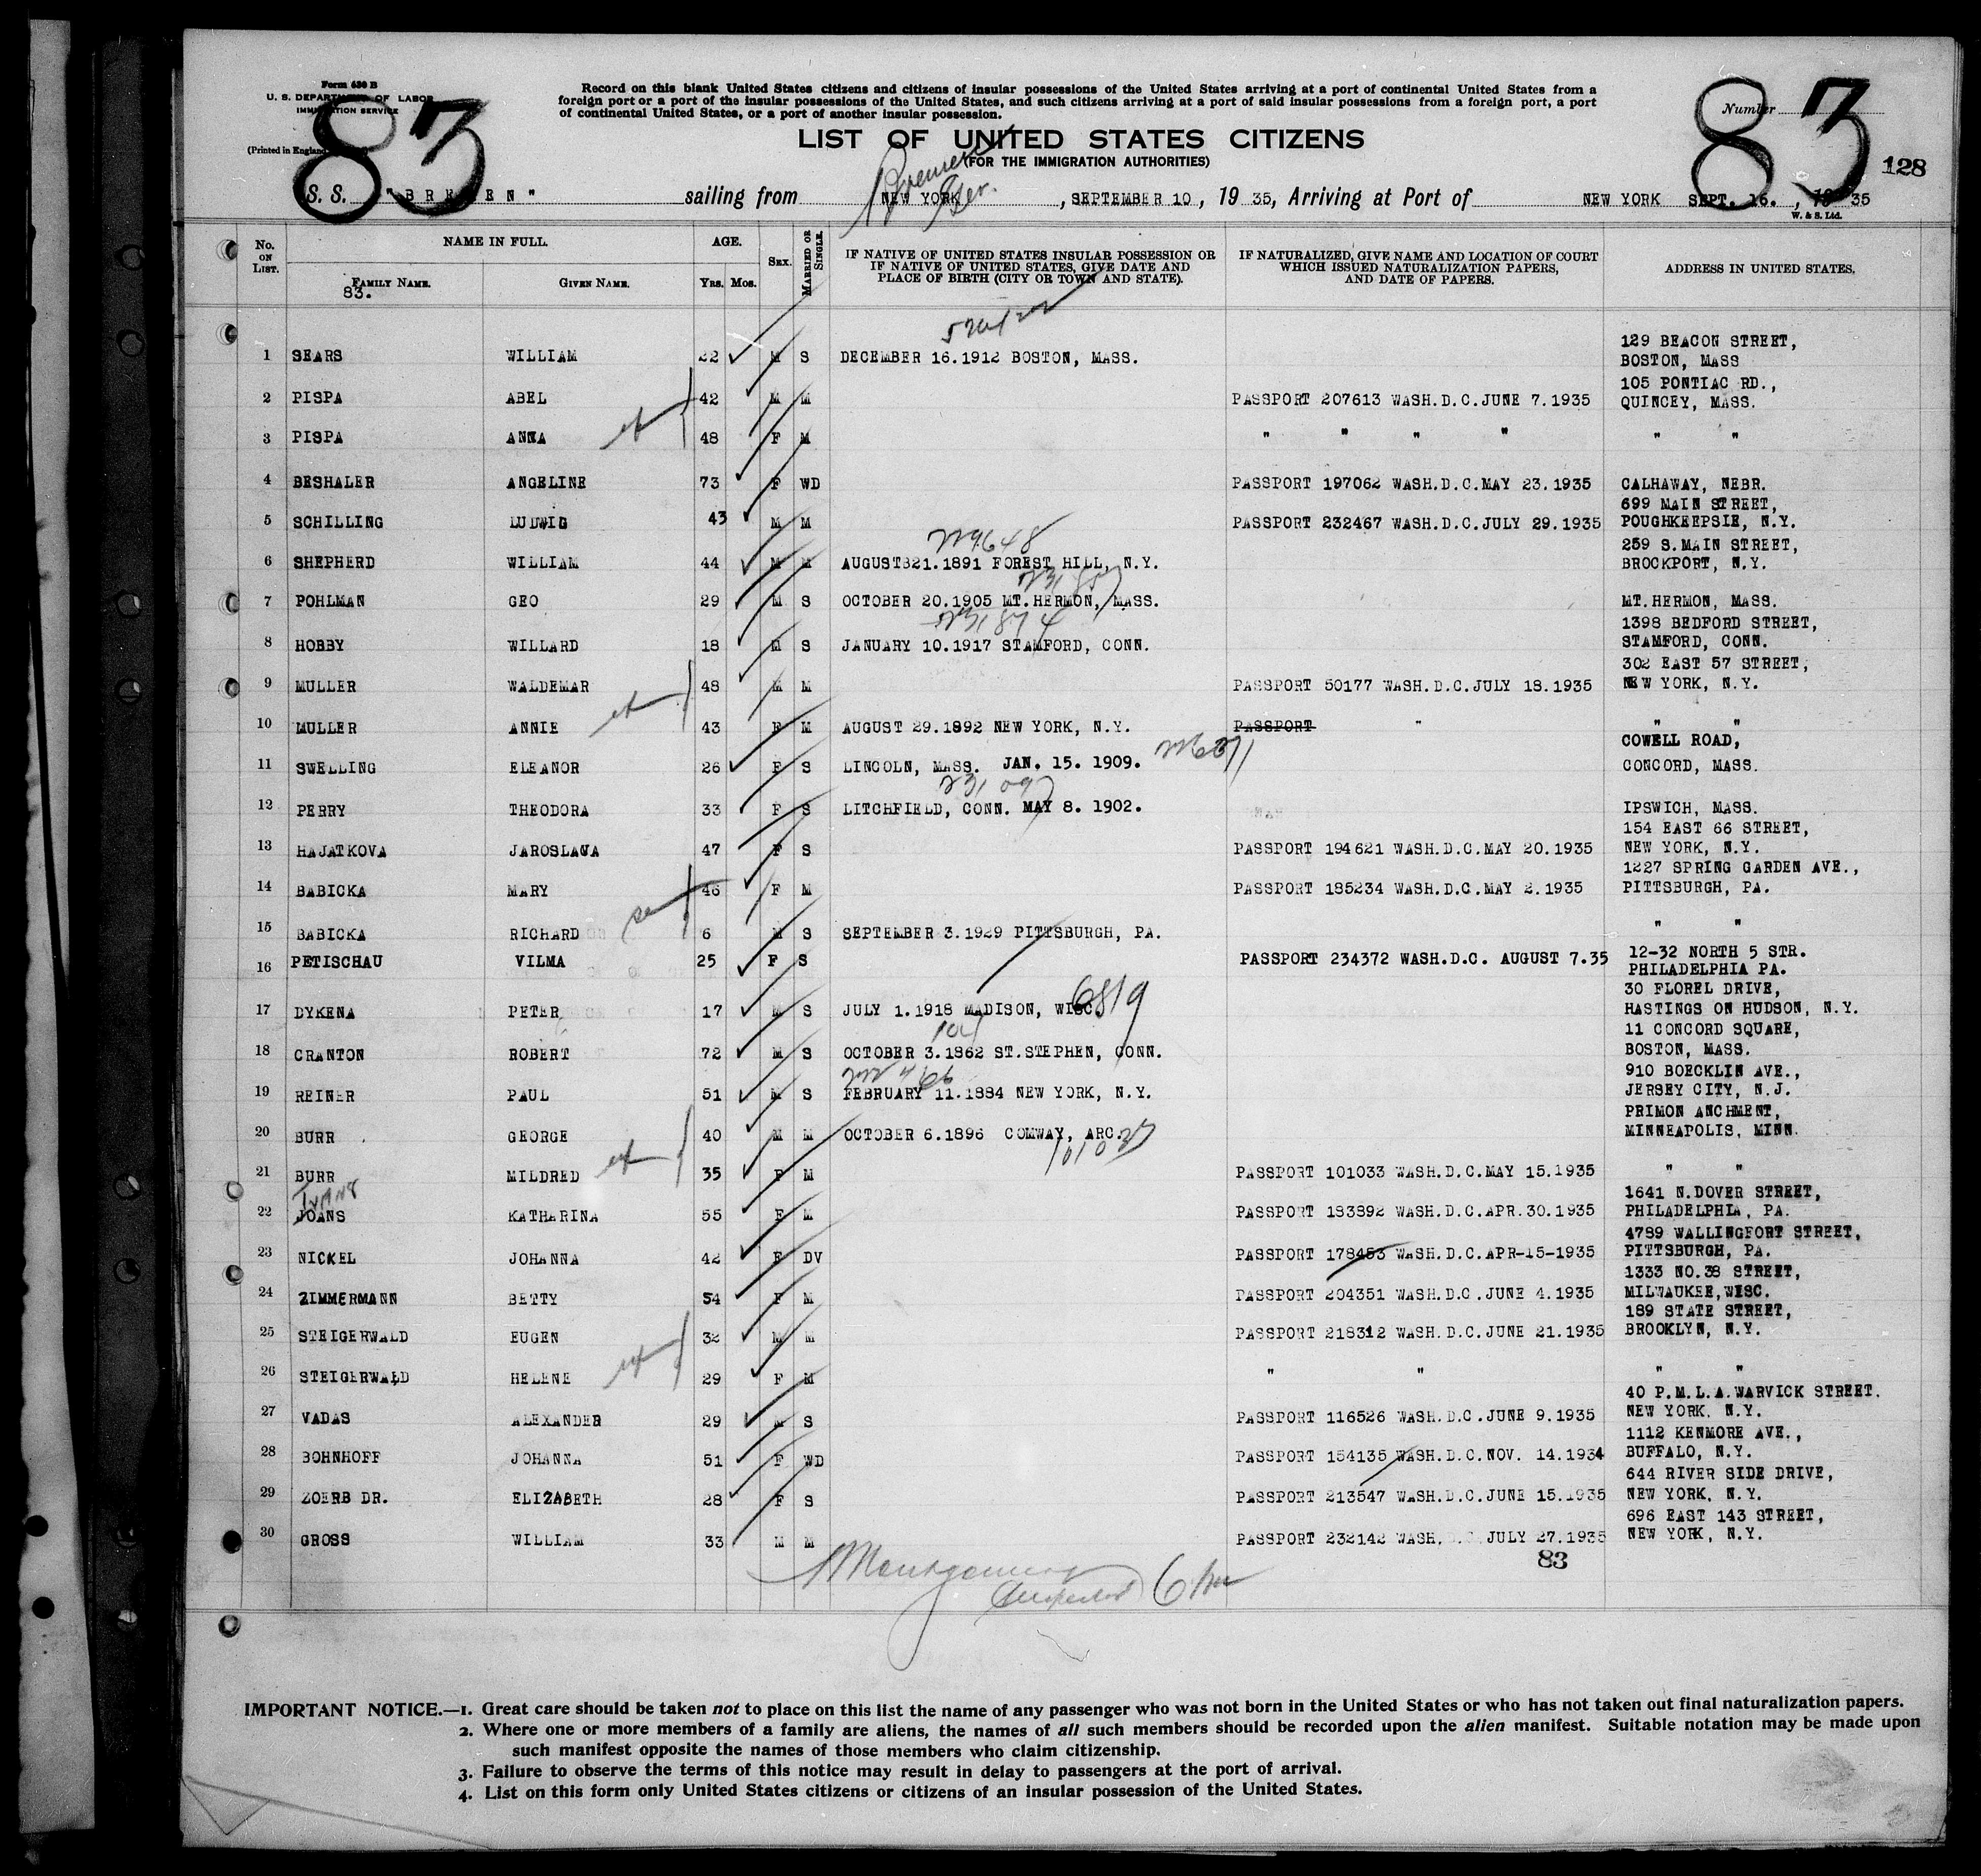 Form 630 B
U. S. DEPARTMENT OF LABOR
IMMIGRATION SERVICE
(Printed in England
83
Record on this blank United States citizens and citizens of insular possessions of the United States arriving at a port of continental United States from a
foreign port or a port of the insular possessions of the United States, and such citizens arriving at a port of said insular possessions from a foreign port, a port
of continental United States, or a port of another insular possession.
Number 83
128
LIST OF UNITED STATES CITIZENS
(FOR THE IMMIGRATION AUTHORITIES)
Bremen Ger.
S. S. "BREMEN" sailing from NEW YORK, SEPTEMBER 10, 1935, Arriving at Port of NEW YORK SEPT. 16., 1935
W. & S. Ltd.
No. ON LIST. NAME IN FULL. AGE. SEX. MARRIED OR SINGLE. IF NATIVE OF UNITED STATES INSULAR POSSESSION OR IF NATIVE OF UNITED STATES, GIVE DATE AND PLACE OF BIRTH (CITY OR TOWN AND STATE). IF NATURALIZED, GIVE NAME AND LOCATION OF COURT WHICH ISSUED NATURALIZATION PAPERS, AND DATE OF PAPERS. ADDRESS IN UNITED STATES.
FAMILY NAME. GIVEN NAME. YRS. MOS.
83.
1 SEARS WILLIAM 22 M S DECEMBER 16.1912 BOSTON, MASS. 129 BEACON STREET, BOSTON, MASS
2 PISPA ABEL 42 M M PASSPORT 207613 WASH.D.C.JUNE 7.1935 105 PONTIAC RD., QUINCEY, MASS.
3 PISPA ANNA 48 F M " " " " " "
4 BESHALER ANGELINE 73 F WD PASSPORT 197062 WASH.D.C.MAY 23.1935 CALHAWAY, NEBR.
5 SCHILLING LUDWIG 43 M M PASSPORT 232467 WASH.D.C.JULY 29.1935 699 MAIN STREET, POUGHKEEPSIE, N.Y.
6 SHEPHERD WILLIAM 44 M M AUGUST821.1891 FOREST HILL, N.Y. 259 S.MAIN STREET, BROCKPORT, N.Y.
7 POHLMAN GEO 29 M S OCTOBER 20.1905 MT.HERMON, MASS. MT.HERMON, MASS.
8 HOBBY WILLARD 18 M S JANUARY 10.1917 STAMFORD, CONN. 1398 BEDFORD STREET, STAMFORD, CONN.
9 MULLER WALDEMAR 48 M M PASSPORT 50177 WASH.D.C.JULY 18.1935 302 EAST 57 STREET, NEW YORK, N.Y.
10 MULLER ANNIE 43 F M AUGUST 29.1892 NEW YORK, N.Y. PASSPORT " " "
11 SWELLING ELEANOR 26 F S LINCOLN, MASS. JAN. 15. 1909. COWELL ROAD, CONCORD, MASS.
12 PERRY THEODORA 33 F S LITCHFIELD, CONN. MAY 8. 1902. IPSWICH, MASS.
13 HAJATKOVA JAROSLAVA 47 F S PASSPORT 194621 WASH.D.C.MAY 20.1935 154 EAST 66 STREET, NEW YORK, N.Y.
14 BABICKA MARY 46 F M PASSPORT 185234 WASH.D.C.MAY 2.1935 1227 SPRING GARDEN AVE., PITTSBURGH, PA.
15 BABICKA RICHARD 6 M S SEPTEMBER 3.1929 PITTSBURGH, PA. " "
16 PETISCHAU VILMA 25 F S PASSPORT 234372 WASH.D.C. AUGUST 7.35 12-32 NORTH 5 STR. PHILADELPHIA PA.
17 DYKENA PETER 17 M S JULY 1.1918 MADISON, WISC. 6819 30 FLOREL DRIVE, HASTINGS ON HUDSON, N.Y.
18 CRANTON ROBERT 72 M S OCTOBER 3.1862 ST.STEPHEN, CONN. 11 CONCORD SQUARE, BOSTON, MASS.
19 REINER PAUL 51 M S FEBRUARY 11.1884 NEW YORK, N.Y. 910 BOECKLIN AVE., JERSEY CITY, N.J.
20 BURR GEORGE 40 M M OCTOBER 6.1896 COMWAY, ARC. PRIMON ANCHMENT, MINNEAPOLIS, MINN.
21 BURR MILDRED 35 F M PASSPORT 101033 WASH.D.C.MAY 15.1935 " "
22 JOANS KATHARINA 55 F M PASSPORT 183892 WASH.D.C.APR.30.1935 1641 N.DOVER STREET, PHILADELPHIA, PA.
23 NICKEL JOHANNA 42 F DV PASSPORT 178453 WASH.D.C.APR-15-1935 4789 WALLINGFORT STREET, PITTSBURGH, PA.
24 ZIMMERMANN BETTY 54 F M PASSPORT 204351 WASH.D.C.JUNE 4.1935 1333 NO.38 STREET, MILWAUKEE,WISC.
25 STEIGERWALD EUGEN 32 M M PASSPORT 218312 WASH.D.C.JUNE 21.1935 189 STATE STREET, BROOKLYN, N.Y.
26 STEIGERWALD HELENE 29 F M " " " "
27 VADAS ALEXANDER 29 M S PASSPORT 116526 WASH.D.C.JUNE 9.1935 40 P.M.L.A.WARVICK STREET. NEW YORK, N.Y.
28 BOHNHOFF JOHANNA 51 F WD PASSPORT 154135 WASH.D.C.NOV. 14.1934 1112 KENMORE AVE., BUFFALO, N.Y.
29 ZOERB DR. ELIZABETH 28 F S PASSPORT 213547 WASH.D.C.JUNE 15.1935 644 RIVER SIDE DRIVE, NEW YORK, N.Y.
30 GROSS WILLIAM 33 M M PASSPORT 232142 WASH.D.C. JULY 27.1935 696 EAST 143 STREET, NEW YORK, N.Y.
83
Montgomery
IMPORTANT NOTICE.—1. Great care should be taken not to place on this list the name of any passenger who was not born in the United States or who has not taken out final naturalization papers.
2. Where one or more members of a family are aliens, the names of all such members should be recorded upon the alien manifest. Suitable notation may be made upon
such manifest opposite the names of those members who claim citizenship.
3. Failure to observe the terms of this notice may result in delay to passengers at the port of arrival.
4. List on this form only United States citizens or citizens of an insular possession of the United States.